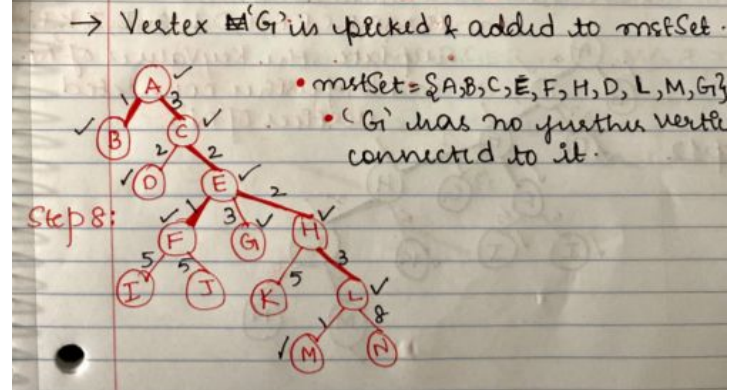 → Vertex 'G' is picked & added to mstSet.
• mstSet = {A,B,C,E,F,H,D,L,M,G}
• 'G' has no further verte
connected to it.
Step 8:
A
1 3
B C
2 2
D E
1 3 2
F G H
5 5 5 3
I J K L
1 8
M N